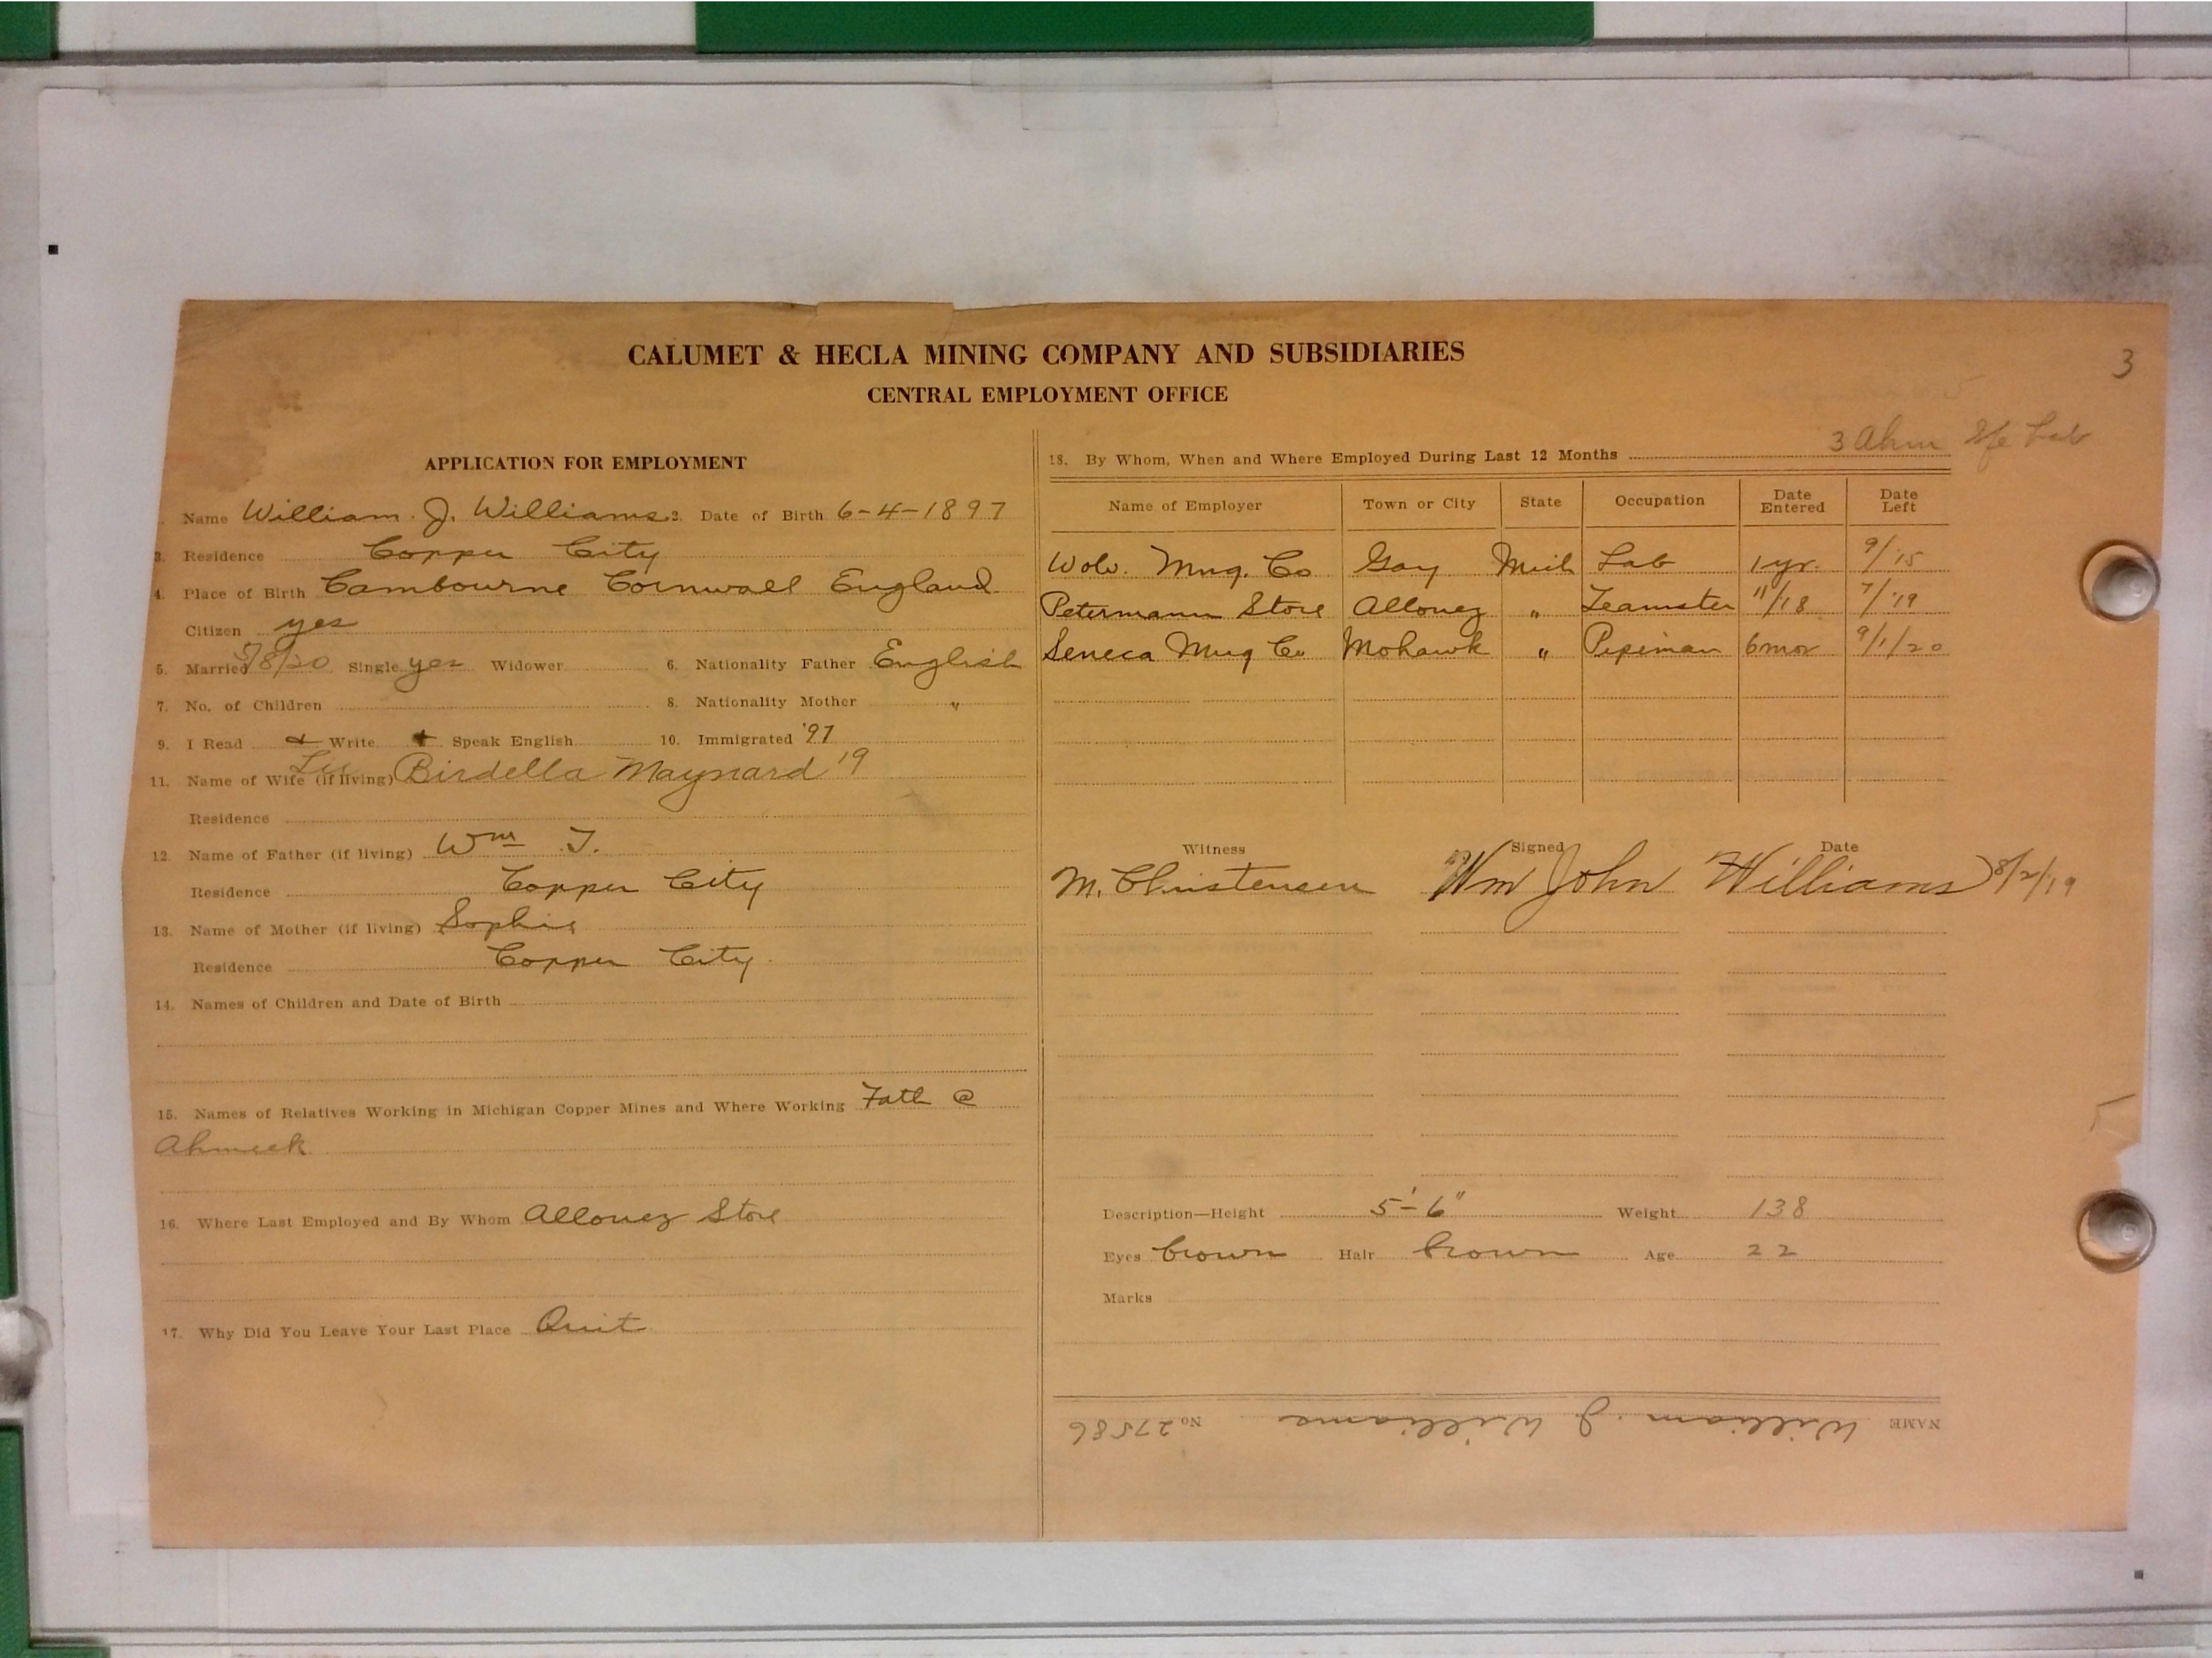 3
CALUMET & HECLA MINING COMPANY AND SUBSIDIARIES
CENTRAL EMPLOYMENT OFFICE
APPLICATION FOR EMPLOYMENT
Name William J. Williams 3. Date of Birth 6-4-1897
3. Residence Copper City
4. Place of Birth Cambourne Cornwall England
Citizen yes
5. Married 5/8/20 Single yes Widower 6. Nationality Father English
7. No. of Children 8. Nationality Mother "
9. I Read & Write + Speak English 10. Immigrated '97
11. Name of Wife (if living) Birdella Maynard '19
Residence
12. Name of Father (if living) Wm J.
Residence Copper City
13. Name of Mother (if living) Sophie
Residence Copper City
14. Names of Children and Date of Birth
15. Names of Relatives Working in Michigan Copper Mines and Where Working Fath @
Ahmeek
16. Where Last Employed and By Whom Allouez Store
17. Why Did You Leave Your Last Place Quit
18. By Whom, When and Where Employed During Last 12 Months 3 Ahm Lab
Name of Employer Town or City State Occupation Date Entered Date Left
Wolv. Mng. Co Gay Mich Lab 1 yr. 9/'15
Petermann Store Allouez " Teamster 11/18 7/'19
Seneca Mng Co Mohawk " Pipeman 6 mos 9/1/20
Witness Signed Date
M. Christensen Wm John Williams 8/2/19
Description—Height 5'-6" Weight 138
Eyes brown Hair brown Age 22
Marks
NAME William J Williams No 27586